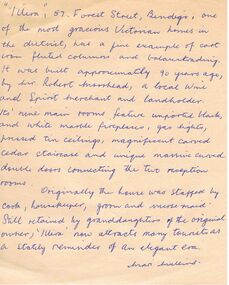 "Illira", 57. Forest Street, Bendigo, one
of the most gracious Victorian homes in
the district, has a fine example of cast
iron fluted columns and balustrading.
It was built approximately 90 years ago,
by Mr. Robert Moorhead, a local Wine
and Spirit merchant and landholder.
Its' nine main rooms feature imported black,
and white marble fireplaces, gas lights,
pressed tin ceilings, magnificent carved
cedar staircase and unique massive curved
double doors connecting the two reception
rooms.
Originally the house was staffed by
cook, housekeeper, groom and nursemaid.
Still retained by granddaughters of the original
owner, "Illira" now attracts many tourists as
a stately reminder of an elegant era.